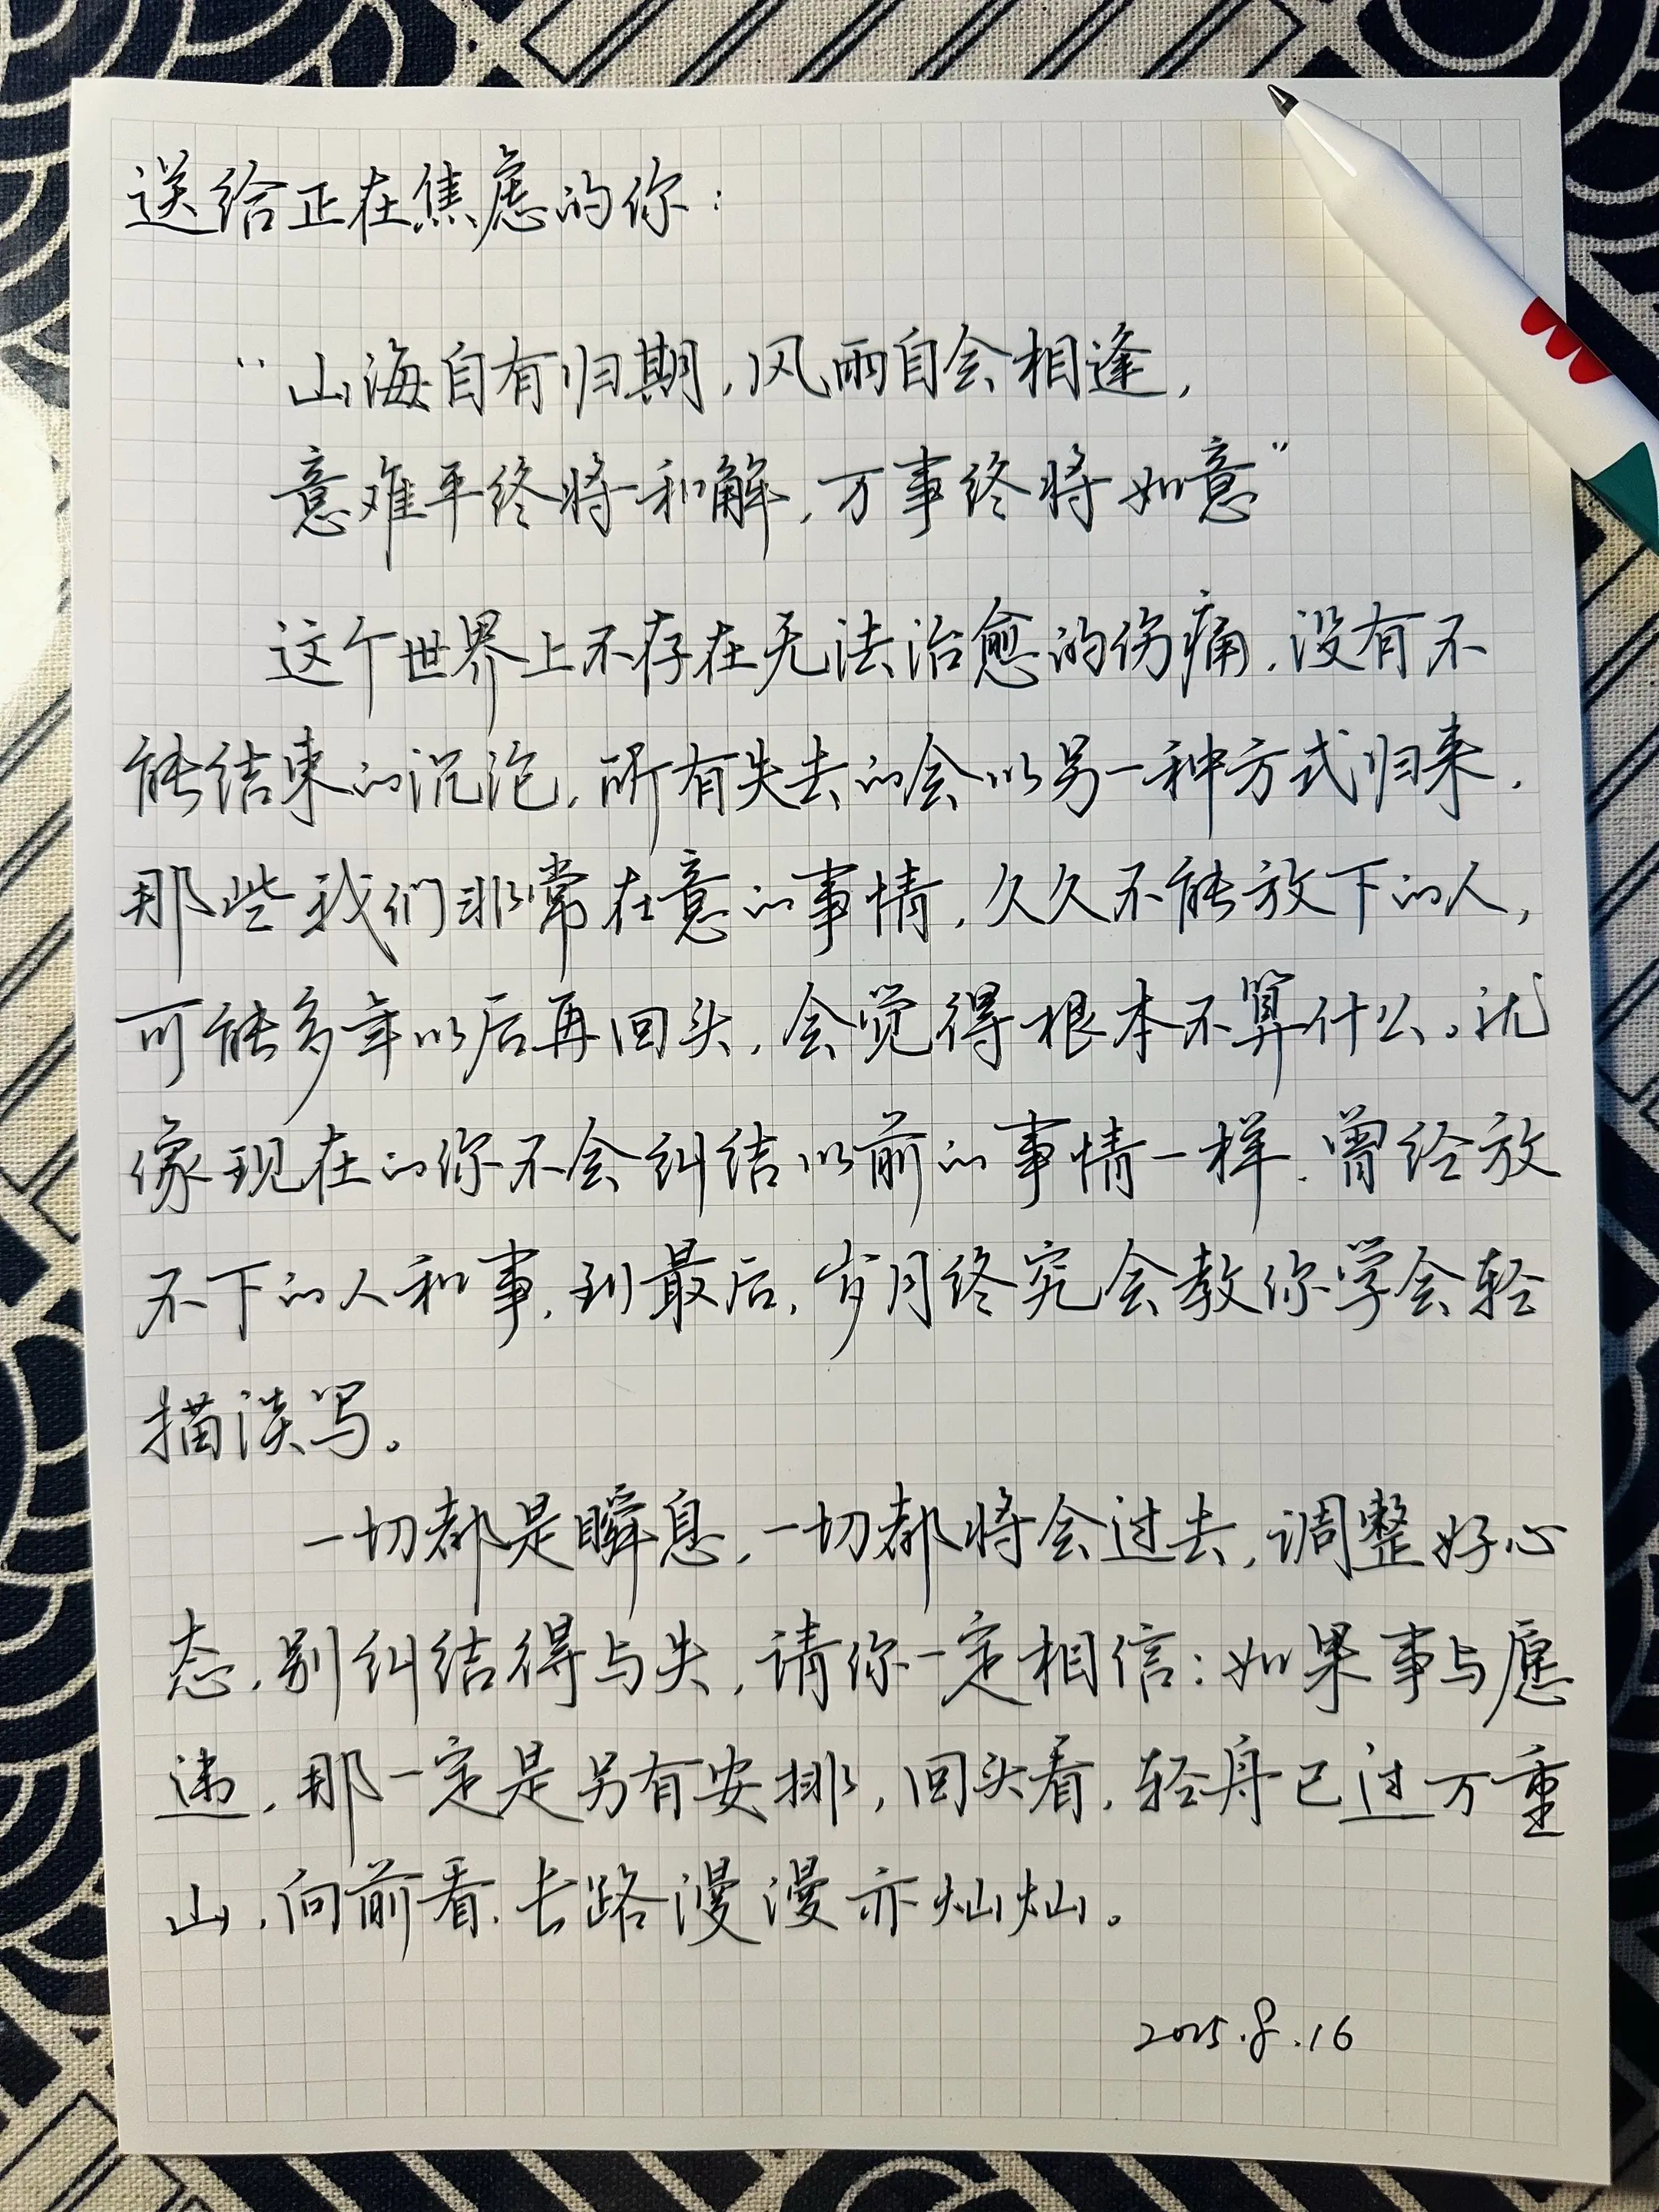 送给正在焦虑的你：
“山海自有归期，风雨自会相逢，
意难平终将和解，万事终将如意”
这个世界上不存在无法治愈的伤痛，没有不
能结束的沉沦，所有失去的会以另一种方式归来，
那些我们非常在意的事情，久久不能放下的人，
可能多年以后再回头，会觉得根本不算什么。就
像现在的你不会纠结以前的事情一样，曾经放
不下的人和事，到最后，岁月终究会教你学会轻
描淡写。
一切都是瞬息，一切都将会过去，调整好心
态，别纠结得与失，请你一定相信：如果事与愿
违，那一定是另有安排，回头看，轻舟已过万重
山，向前看，长路漫漫亦灿灿。
2025.8.16